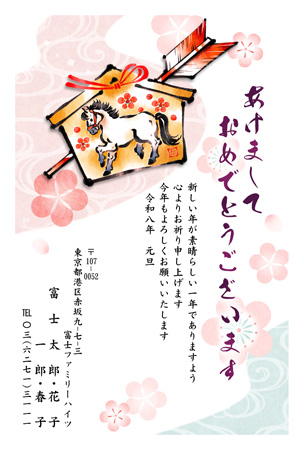 あけまして
おめでとうございます
新しい年が素晴らしい一年でありますよう
心よりお祈り申し上げます
今年もよろしくお願いいたします
令和八年 元旦
〒107-0052
東京都港区赤坂九-七-三
富士ファミリーハイツ
富士太郎・花子
一郎・春子
℡〇三(六二七一)三一一一